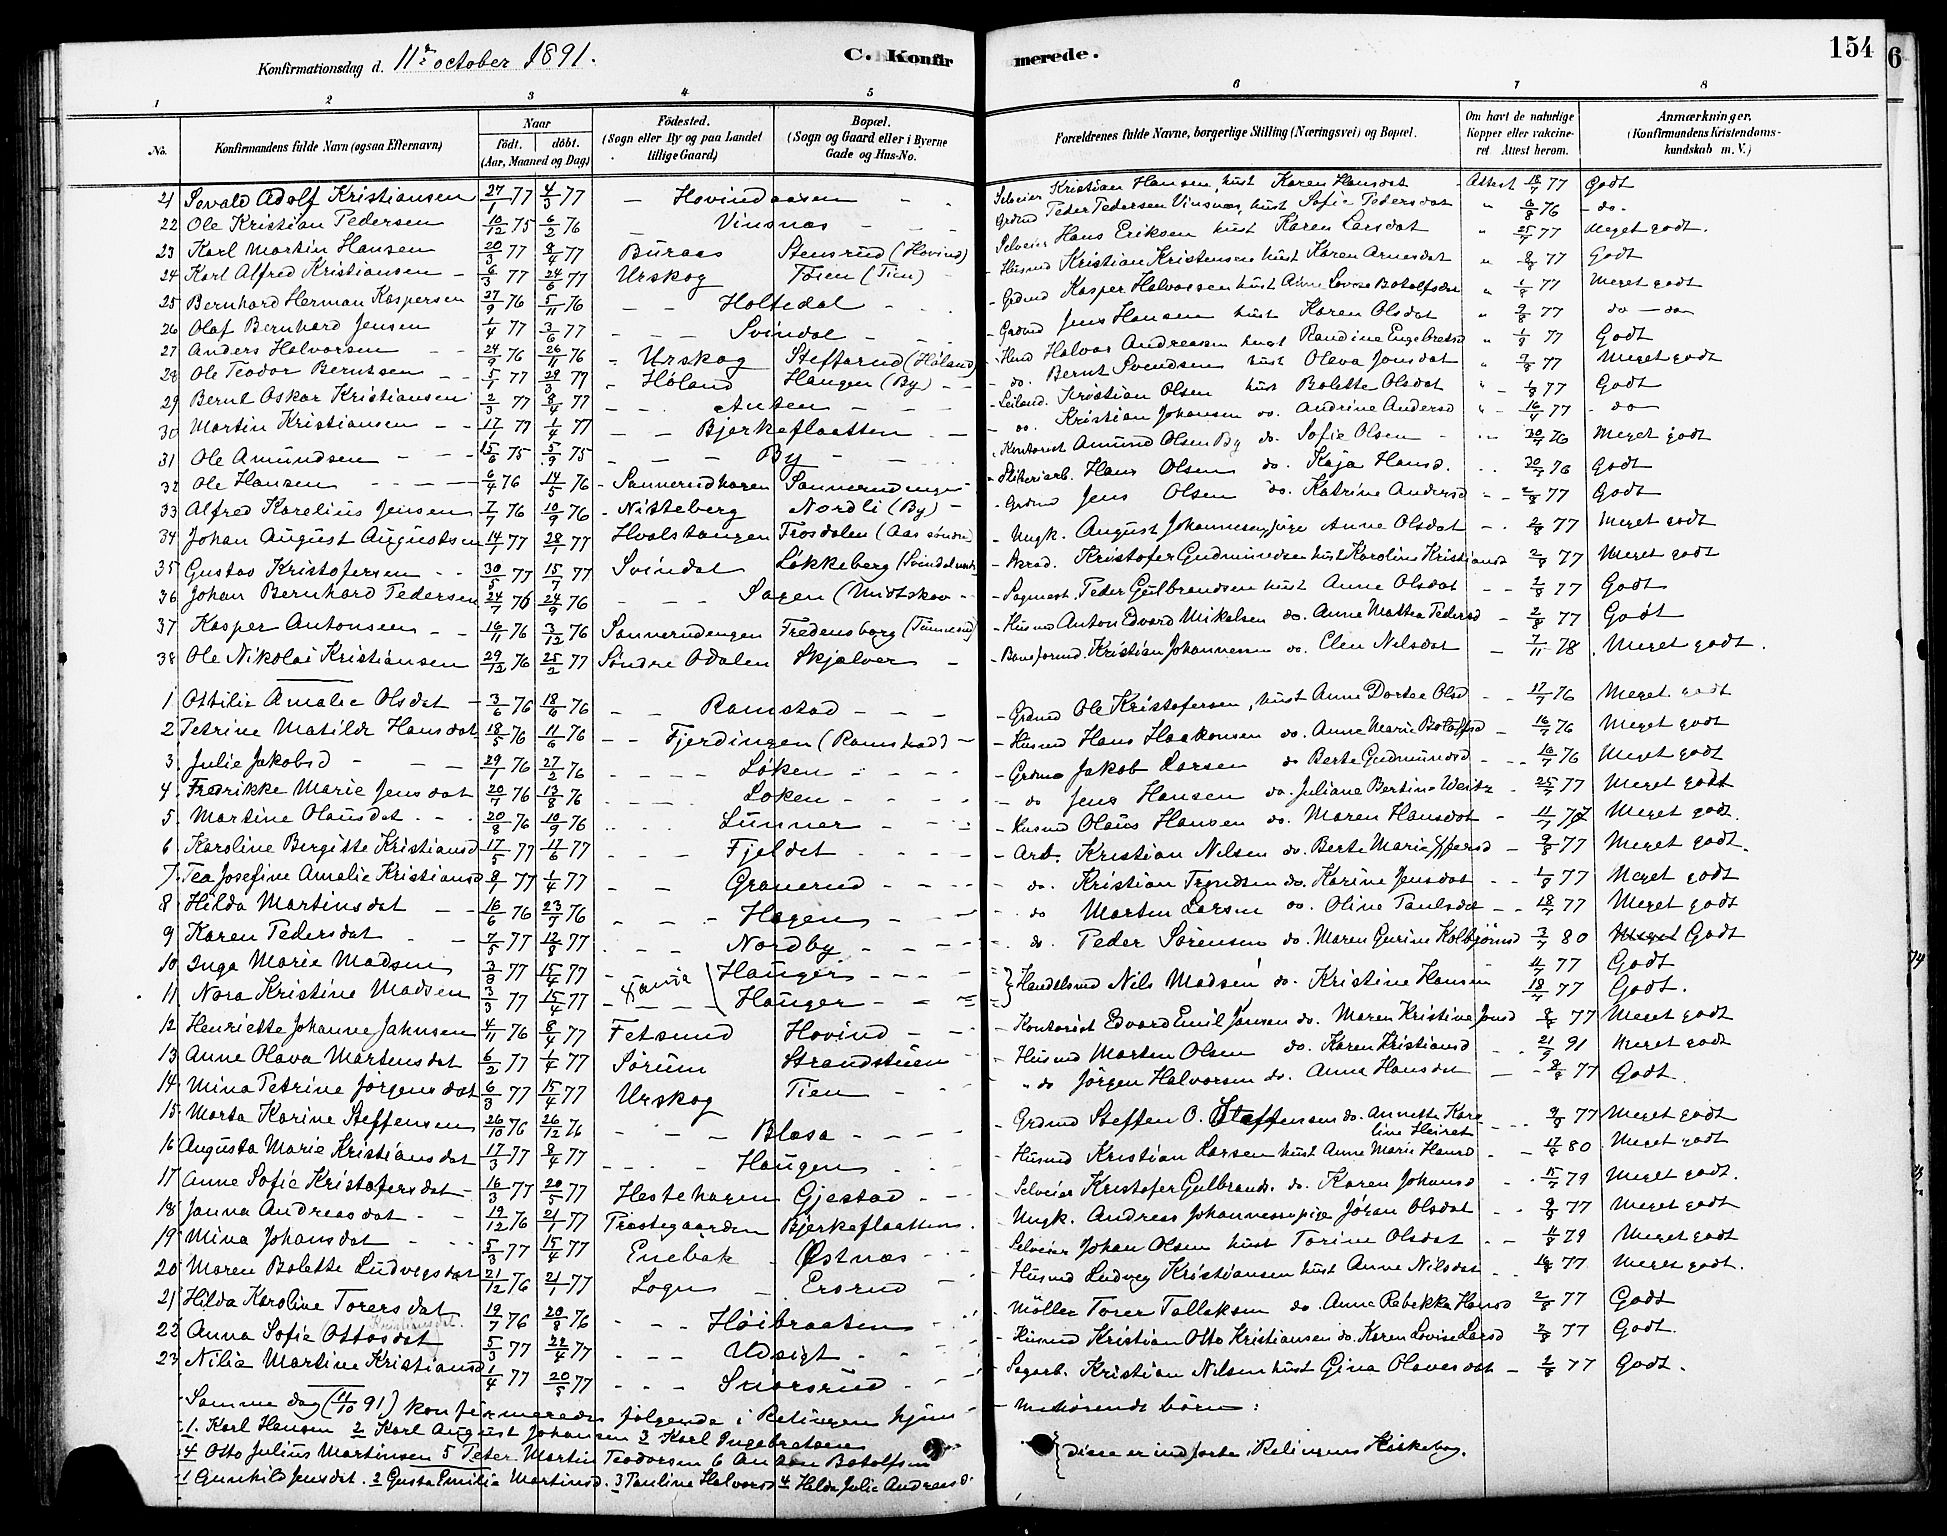 Konfirmationsdag d. 11te october 1891. C. Konfirmerede. 154
1 2 3 4 5 6 7 8
No. Konfirmandens fulde Navn (ogsaa Efternavn) Naar Født. døbt. (Aar, Maaned og Dag) Fødested. (Sogn eller By og paa Landet tillige Gaard) Bopæl. (Sogn og Gaard eller i Byerne Gade og Hus-No. Forældrenes fulde Navne, borgerlige Stilling (Næringsvei) og Bopæl. Om havt de naturlige Kopper eller vakcineret Attest herom. Anmærkninger, (Konfirmandens Kristendomskundskab m. V.)
21 Sevald Adolf Kristiansen 27/1 77 4/3 77 — Hovindaasen Selveier Kristian Hansen, hust Karen Hansdat Attest 18/7 77 Godt
22 Ole Kristian Pedersen 10/12 75 6/2 76 — Vinsnæs Grdmd Peder Pedersen Vinsnæs, hust Sofie Pedersdat " 6/8 76 - do -
23 Karl Martin Hansen 20/3 77 8/4 77 Buraas Stensrud (Hovind) Selveier Hans Eriksen hust Karen Larsdat " 25/7 77 Meget godt.
24 Karl Alfred Kristiansen 6/3 77 24/6 77 Urskog Tøien (Tien) Husmd Kristian Kristensen hust Karen Arnesdat " 8/8 77 Godt
25 Bernhard Herman Kaspersen 27/9 76 5/11 76 Holtedal Grdmd Kasper Halvorsen hust Anne Lovise Botolfsdat " 1/8 77 Meget godt
26 Olaf Bernhard Jensen 1/4 77 3/6 77 Svindal Grdmd Jens Hansen hust Karen Olsdat " 9/8 77 do — do
27 Anders Halvorsen 24/9 76 26/11 76 Urskog Steffarud (Høland) Hmd Halvor Andreasen hust Randine Engebretsd " 1/9 77 Godt
28 Ole Teodor Berntsen 5/1 77 29/3 77 Høland Hauger (By) do. Bernt Svendsen hust Oleva Jonsdat " 9/8 77 Meget godt
29 Bernt Oskar Kristiansen 2/3 77 8/4 77 Anten Leiland. Kristian Olsen hust Bolette Olsdat " 1/8 77 Godt
30 Martin Kristiansen 17/1 77 1/4 77 Bjerkeflaatten do. Kristian Johansen do. Andrine Andersd " 16/4 77 - do
31 Ole Amundsen 15/6 75 5/9 75 By Kontorist Amund Olsen By do. Sofie Olsen 20/7 76 Meget godt
32 Ole Hansen 6/4 76 14/5 76 Sannerudhagen Sannerudengen Hans Olsen do. Kaja Hansd. 20/7 76 Godt
33 Alfred Karelius Jensen 7/7 76 10/9 76 Nitteberg Nordli (By) Grdmd Jens Olsen do. Katrine Andersd 2/8 77 Godt
34 Johan August Augustsen 14/1 77 28/1 77 Hvalstangen Frosdalen (Aas søndre) Ungk. August Johannesen, pige Anne Olsdat 2/8 77 Meget godt
35 Gustav Kristofersen 30/5 77 15/7 77 Svindal Løkkeberg (Svindal Kristofer Gudmundsen hust Karoline Kristiansd 2/8 77 Meget godt
36 Johan Bernhard Pedersen 24/7 76 24/9 76 Sagen (Midtskov Sagmest. Peder Gulbrandsen hust Anne Olsdat 2/8 77 Godt
37 Kasper Antonsen 16/11 76 3/12 76 Sannerudengen Fredensborg (Tunnerud) Husmd Anton Edvard Mikelsen do. Anne Mathea Pedersd 2/8 77 Godt
38 Ole Nikolai Kristiansen 29/12 76 25/2 77 Søndre Odalen Skjatver Baneformd. Kristian Johannesen do. Elen Nilsdat 7/11 78 Meget godt.
1 Ottilie Amalie Olsdat 3/6 76 18/6 76 Ramstad Grdmd Ole Kristofersen, hust Anne Dortea Olsd 17/7 76 Meget godt
2 Petrine Matilde Hansdat 18/5 76 11/6 76 Fjerdingen (Ramstad) Husmd Hans Haakonsen do. Anne Marie Botolfsd 16/7 76 Meget godt
3 Julie Jakobsd 29/1 76 27/2 76 Løken Grdmd Jakob Larsen do Berte Gudmundsd 16/7 76 Meget godt
4 Fredrikke Marie Jensdat 20/7 76 13/8 76 Løken do Jens Hansen do. Juliane Bertine Weitz 25/7 77 Meget godt
5 Martine Olausdat 20/8 76 10/9 76 Lunner Husmd Olaus Hansen do. Maren Hansdat 11/7 77 Meget godt.
6 Karoline Birgitte Kristiansd 17/5 77 17/6 77 Fjeldet Arb. Kristian Nilsen do. Berte Marie 9/8 77 Meget godt.
7 Tea Josefine Amalie Kristiansd 8/1 77 1/4 77 Granerud do. Kristian Trondsen do. Karine Jensdat 1/8 77 Meget godt
8 Hilda Martinsdat 16/6 76 23/7 76 Hagen do Martin Larsen do. Oline Paulsdat 18/7 77 Meget godt
9 Karen Pedersdat 7/5 77 12/8 77 Nordby do. Peder Sørensen do. Maren Gurine Kolbjørnsd 3/7 80 Godt
10 Inga Marie Madsen 3/3 77 15/4 77 Hauger Handelsmd Nils Madsen do. Kristine Hansen 11/7 77 Godt
11 Nora Kristine Madsen 3/3 77 15/4 77 Hauger 18/7 77 Godt.
12 Henriette Johanne Jahnsen 4/11 76 8/4 77 Fetsund Hovind Kontorist Edvard Emil Jansen do. Maren Kristine Jensd 8/8 77 Meget godt
13 Anne Olava Martensdat 6/2 77 1/4 77 Sørum Strandstuen Husmd Morten Olsen do. Karen Kristiansd 21/9 91 Meget godt
14 Mina Petrine Jørgensdat 6/3 77 15/4 77 Urskog Tien do Jørgen Halvorsen do. Anne Hansdat 2/8 77 Godt.
15 Marta Karine Steffensen 26/10 76 26/12 76 Blæsa Grdmd Steffen O. Steffensen do. Annette Karoline Heiret 9/8 77 Meget godt
16 Augusta Marie Kristiansdat 17/3 77 8/4 77 Haugen Husmd Kristian Larsen hust Anne Marie Hansd 17/8 80 Meget godt
17 Anne Sofie Kristofersdat 16/3 77 20/5 77 Hestehagen Gjestad Selveier Kristofer Gulbrands. do. Karen Johansd 15/7 79 Meget godt.
18 Janna Andreasdat 19/12 76 21/1 77 Prestegaarden Bjerkeflaatten Ungk. Andreas Johannessen pige Jøran Olsdat 9/8 77 Meget godt
19 Mina Johansdat 5/3 77 15/4 77 Enebak Østnæs Selveier Johan Olsen hust Torine Olsdat 11/8 79 Meget godt
20 Maren Bolette Ludvigsdat 21/12 76 21/1 77 Sogn Ersrud Husmd Ludvig Kristiansen hust Anne Nilsdat 16/8 77 Meget godt.
21 Hilda Karoline Torersdat 19/7 76 20/8 76 Høibraaten Møller Torer Tallaksen do. Anne Rebekka Hansd 2/8 77 Godt
22 Anna Sofie Ottosdat Kristiansdat. 5/1 77 22/4 77 Udsigt Husmd Kristian Otto Kristiansen do. Karen Lovise Larsd 2/8 77 Godt.
23 Nilia Martine Kristiansd 1/4 77 20/5 77 Snarsrud Sagarb. Kristian Nilsen hust Gina Olavesdat 2/8 77 Godt.
Samme dag (11/10 91) konfirmeredes følgende i Rælingen hjemmehørende børn:
1. Karl Hansen 2 Karl August Johansen 3 Karl Ingebretsen
4 Otto Julius Martinsen 5 Peter Martin Teodorsen 6 Anton Botolfsen } disse er indførte i Rælingens Kirkebog.
1 Gunhild Jensdat. 2 Gusta Emilie Martinsd. 3 Pauline Halvorsd 4 Hilda Julie Andreasd